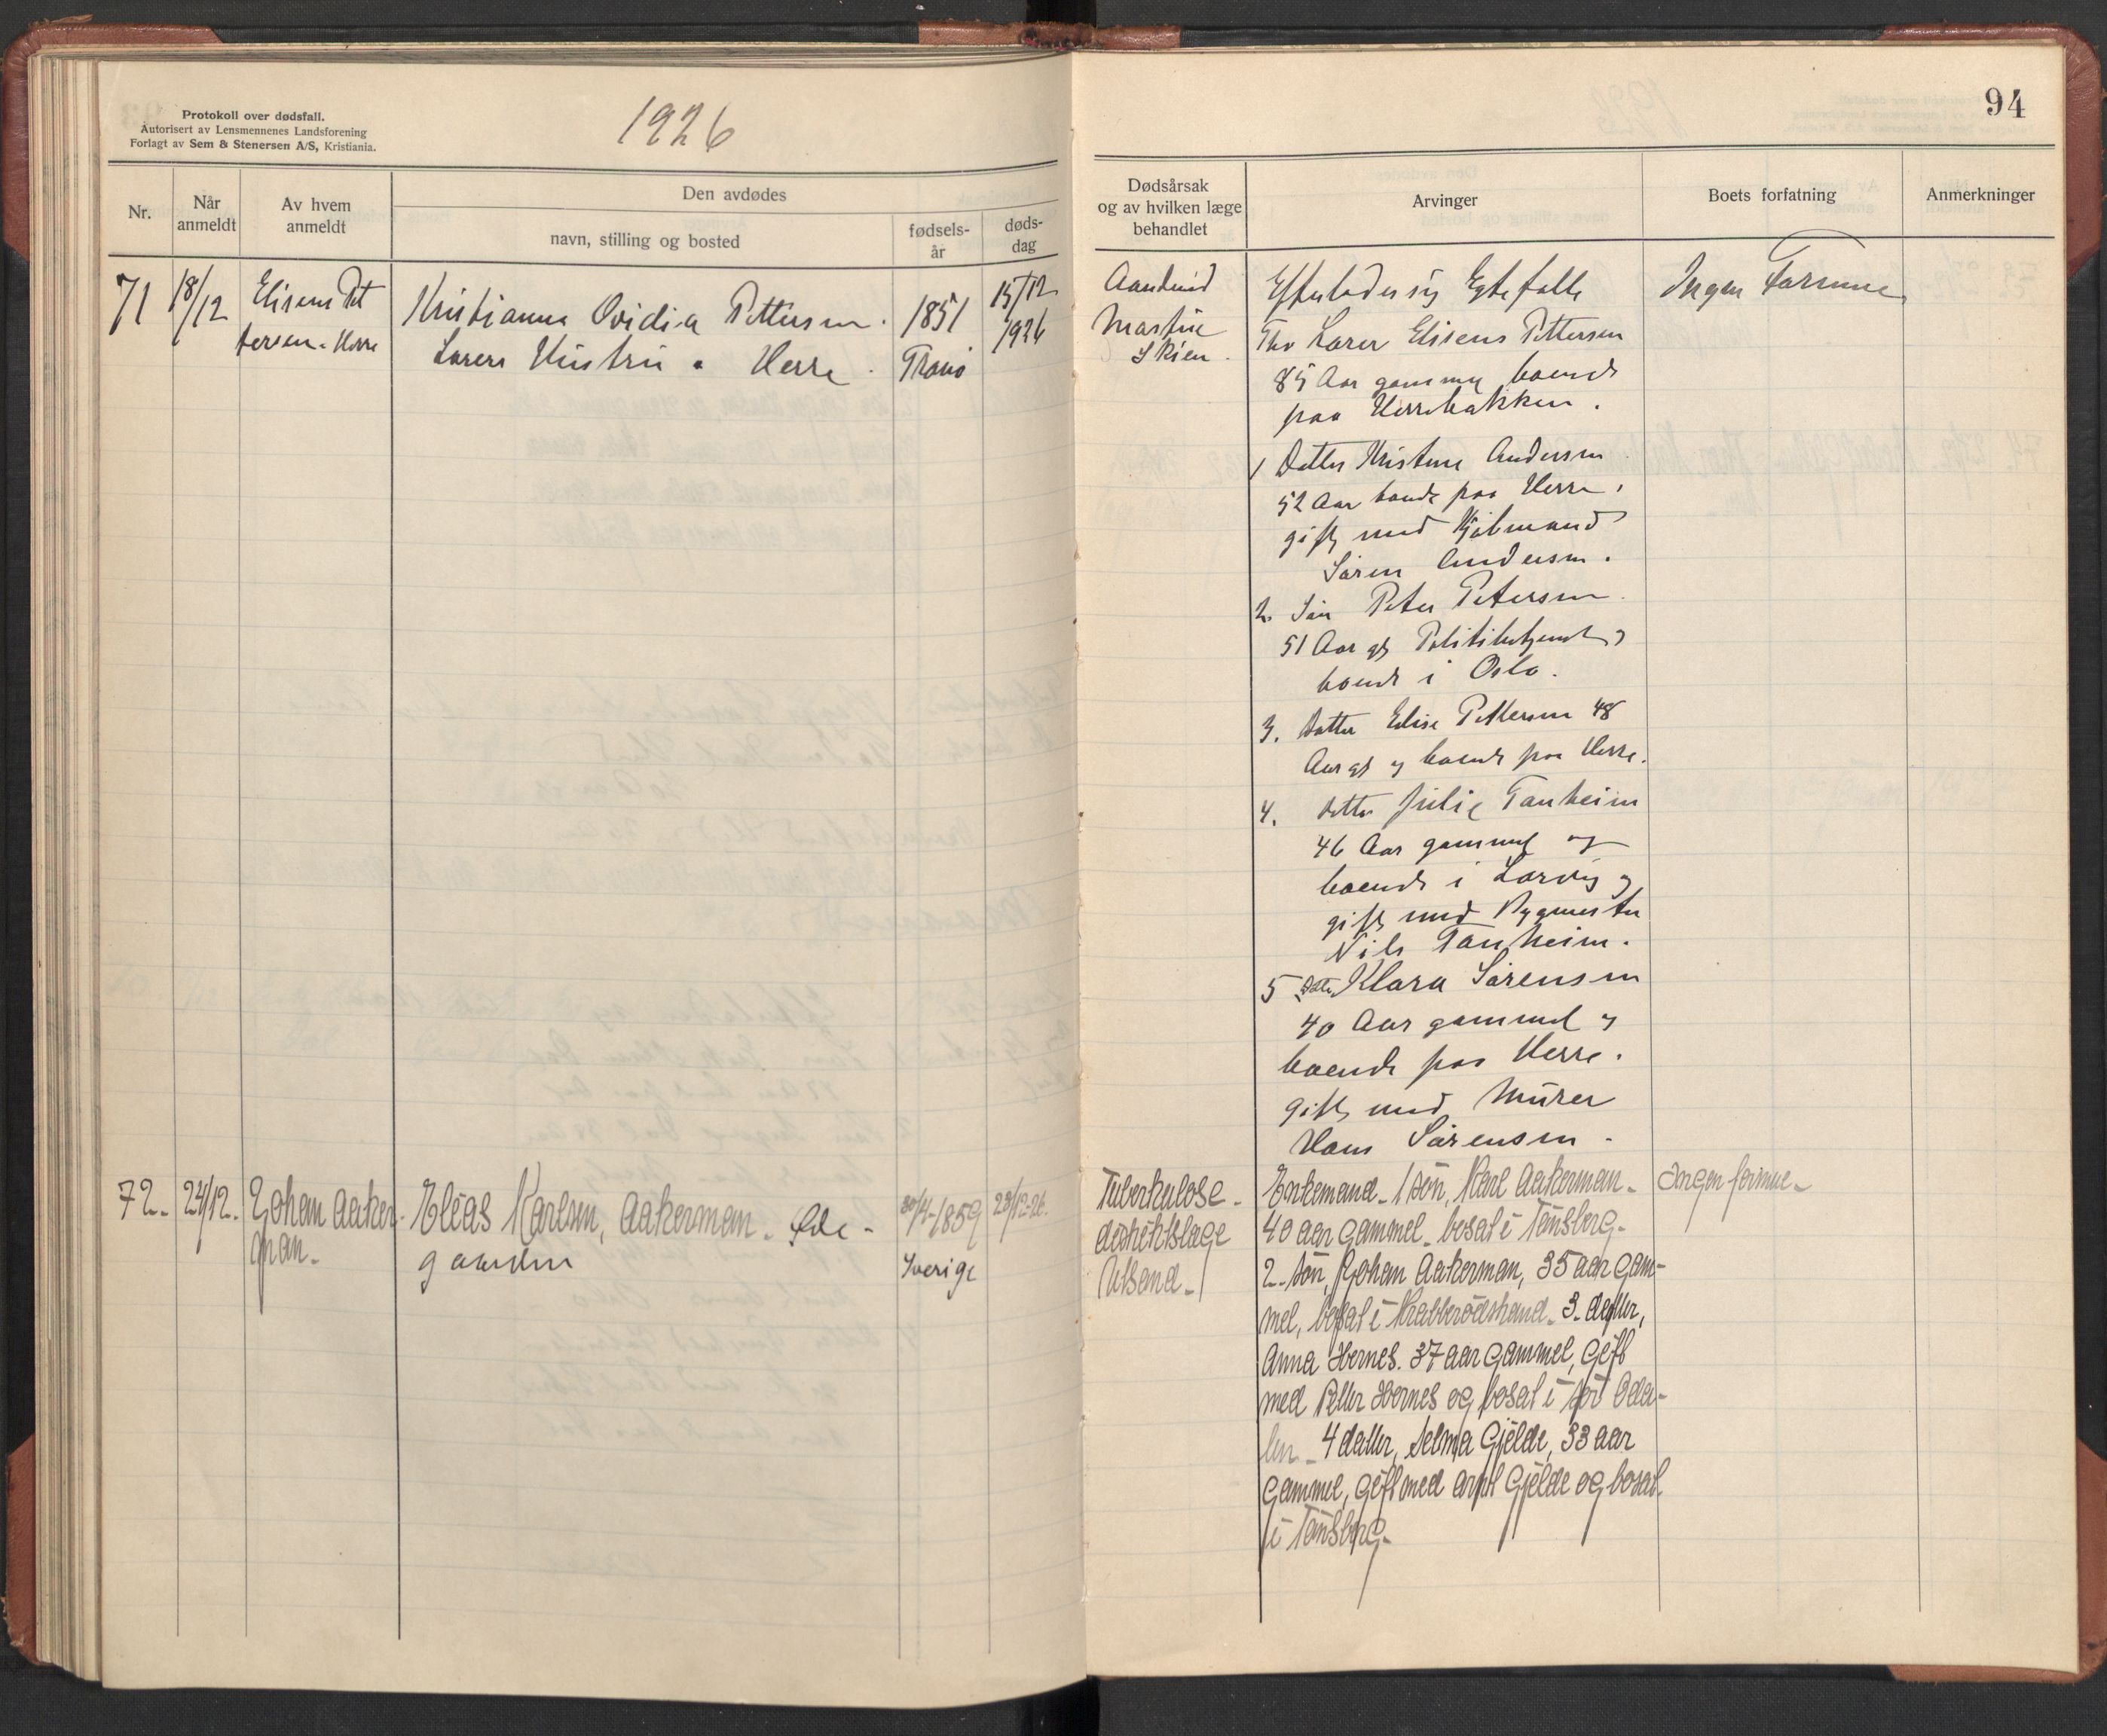 Protokoll over dødsfall.
Autorisert av Lensmennenes Landsforening
Forlagt av Sem & Stenersen A/S, Kristiania.
1926
94
Nr.
Når anmeldt
Av hvem anmeldt
Den avdødes
navn, stilling og bosted
fødsels-
år
døds-
dag
Dødsårsak
og av hvilken læge
behandlet
Arvinger
Boets forfatning
Anmerkninger
71
18/12
Elisens Pet
tersen. Herre
Kristianna Ovidia Pettersen.
Lærers Hustru. Herre.
1851
15/12
1926
Martin
Skien.
Efterlader sig Egtefalle
Lærer Elisens Pettersen
85 Aar gammel boende
paa Herrebakken.
1 Datter Kristine Andersen
52 Aar boende paa Herre,
gift med Kjøbmand
Søren Andersen.
2. Søn Peter Petersen
51 Aar gl Politibetjent,
boende i Oslo.
3. Datter Elise Pettersen 48
Aar gl og boende paa Herre.
4. Datter Julie Tanheim
46 Aar gammel og
boende i Larvig og
gift med Bygmester
Nils Tanheim.
5 Datter Klara Sørensen
40 Aar gammel og
boende paa Herre.
gift med Murer
Hans Sørensen.
Ingen Formue
72.
24/12.
Johan Aaker-
man.
Elias Karlsen, Aakerman.
gaarden
30/4-1859
Sverige
23/12-26.
Tuberkulose.
distriktslæge
Enkemand. 1 søn, Karl Aakerman.
40 aar gammel. bosat i Tønsberg.
2. søn, Johan Aakerman, 35 aar gam-
mel, bosat i Krabberødstrand. 3. datter,
Anna Hernes. 37 aar gammel, gift
med Petter Hernes og bosat i Sør Oda-
len. 4 datter, Selma Gjelde, 33 aar
gammel, gift med Arnt Gjelde og bosat
i Tønsberg.
Ingen formue.